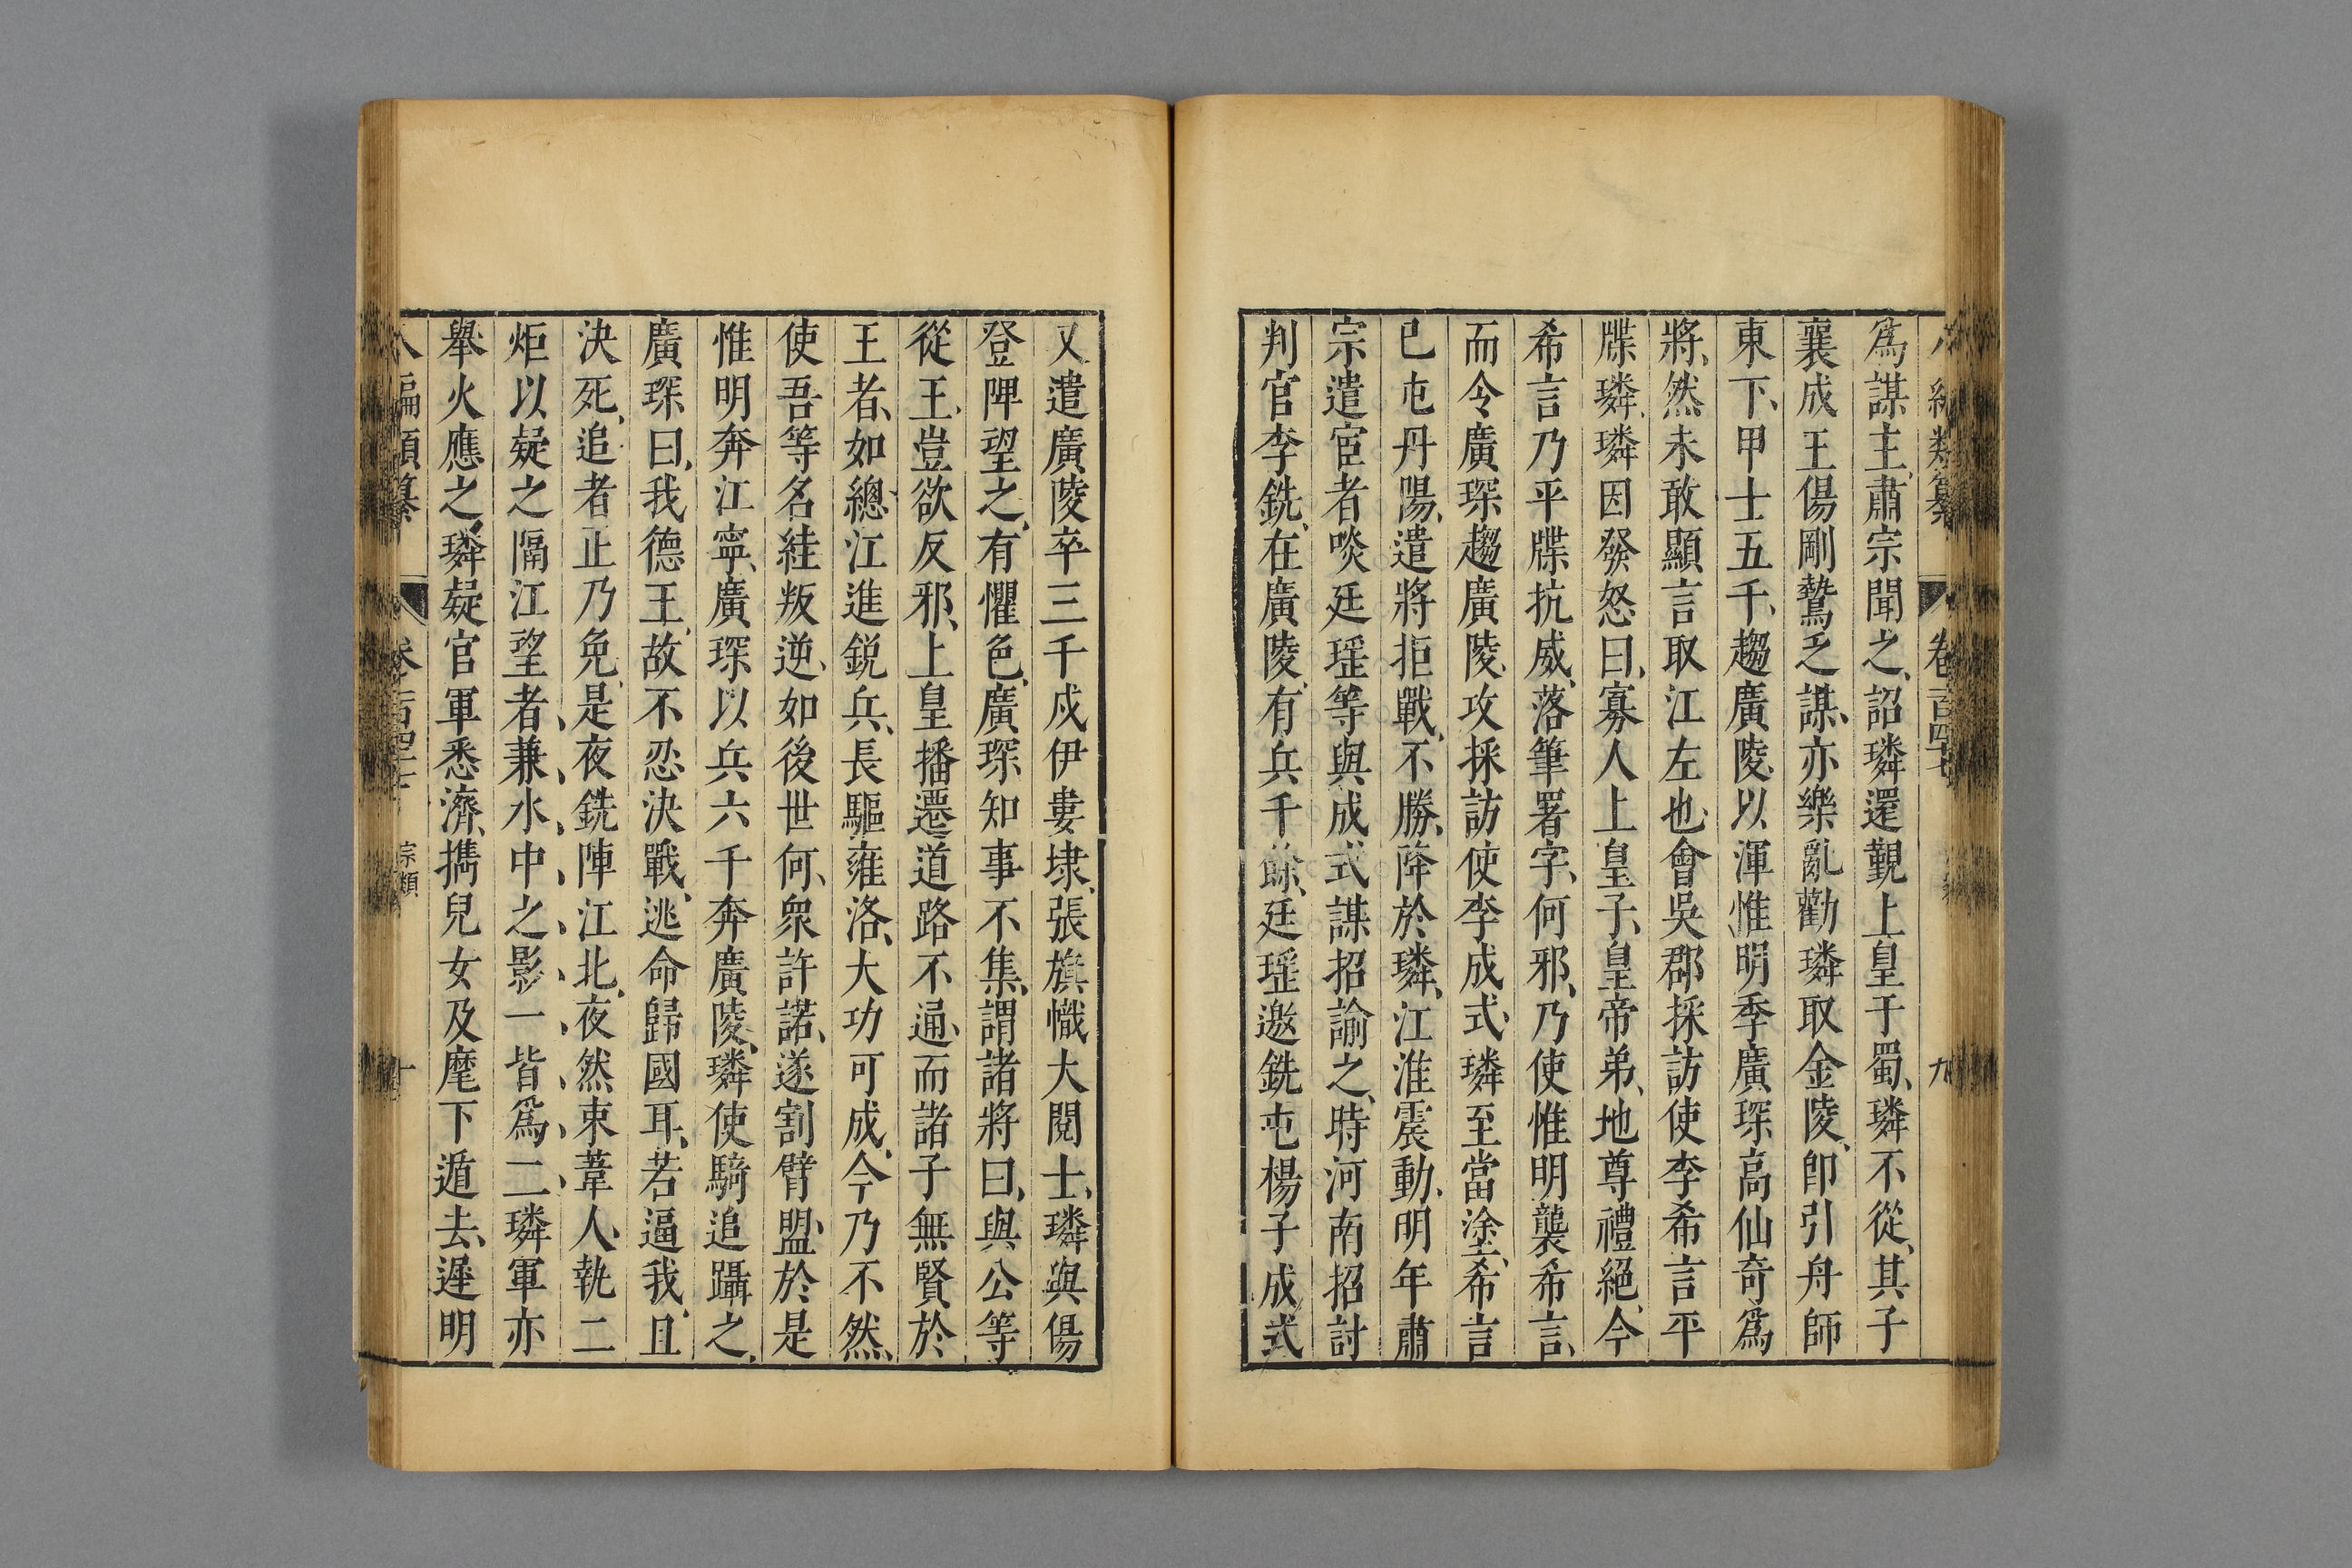 八編類纂 卷一百四十七 九
爲謀主、肅宗聞之、詔璘還覲上皇于蜀、璘不從、其子
襄成王偒剛鷙乏謀、亦樂亂勸璘取金陵、卽引舟師
東下、甲士五千、趨廣陵、以渾惟明季廣琛高仙奇爲
將、然未敢顯言取江左也、會吳郡採訪使李希言平
牒璘、璘因發怒曰、寡人上皇子、皇帝弟、地尊禮絕、今
希言乃平牒抗威、落筆署字、何邪、乃使惟明襲希言、
而令廣琛趨廣陵、攻採訪使李成式、璘至當塗、希言
已屯丹陽、遣將拒戰、不勝、降於璘、江淮震動、明年肅
宗遣宦者啖廷瑶等與成式謀招諭之、時河南招討
判官李銑、在廣陵、有兵千餘、廷瑶邀銑屯楊子成式
又遣廣陵卒三千戍伊婁埭、張旗幟大閱士、璘與偒
登陴望之、有懼色、廣琛知事不集、謂諸將曰、與公等
從王、豈欲反邪、上皇播遷道路不通、而諸子無賢於
王者、如總江進銳兵、長驅雍洛、大功可成、今乃不然、
使吾等名絓叛逆、如後世何、衆許諾、遂割臂盟、於是
惟明奔江寧、廣琛以兵六千奔廣陵、璘使騎追躡之、
廣琛曰、我德王、故不忍決戰、逃命歸國耳、若逼我、且
決死、追者止乃免、是夜銑陣江北、夜然束葦人、執二
炬以疑之隔江望者、兼、水、中、之、影、一、皆、爲、二、璘軍亦
舉火應之、璘疑官軍悉濟、攜兒女及麾下遁去、遲明
八編類纂 卷一百四十七 宗類 十